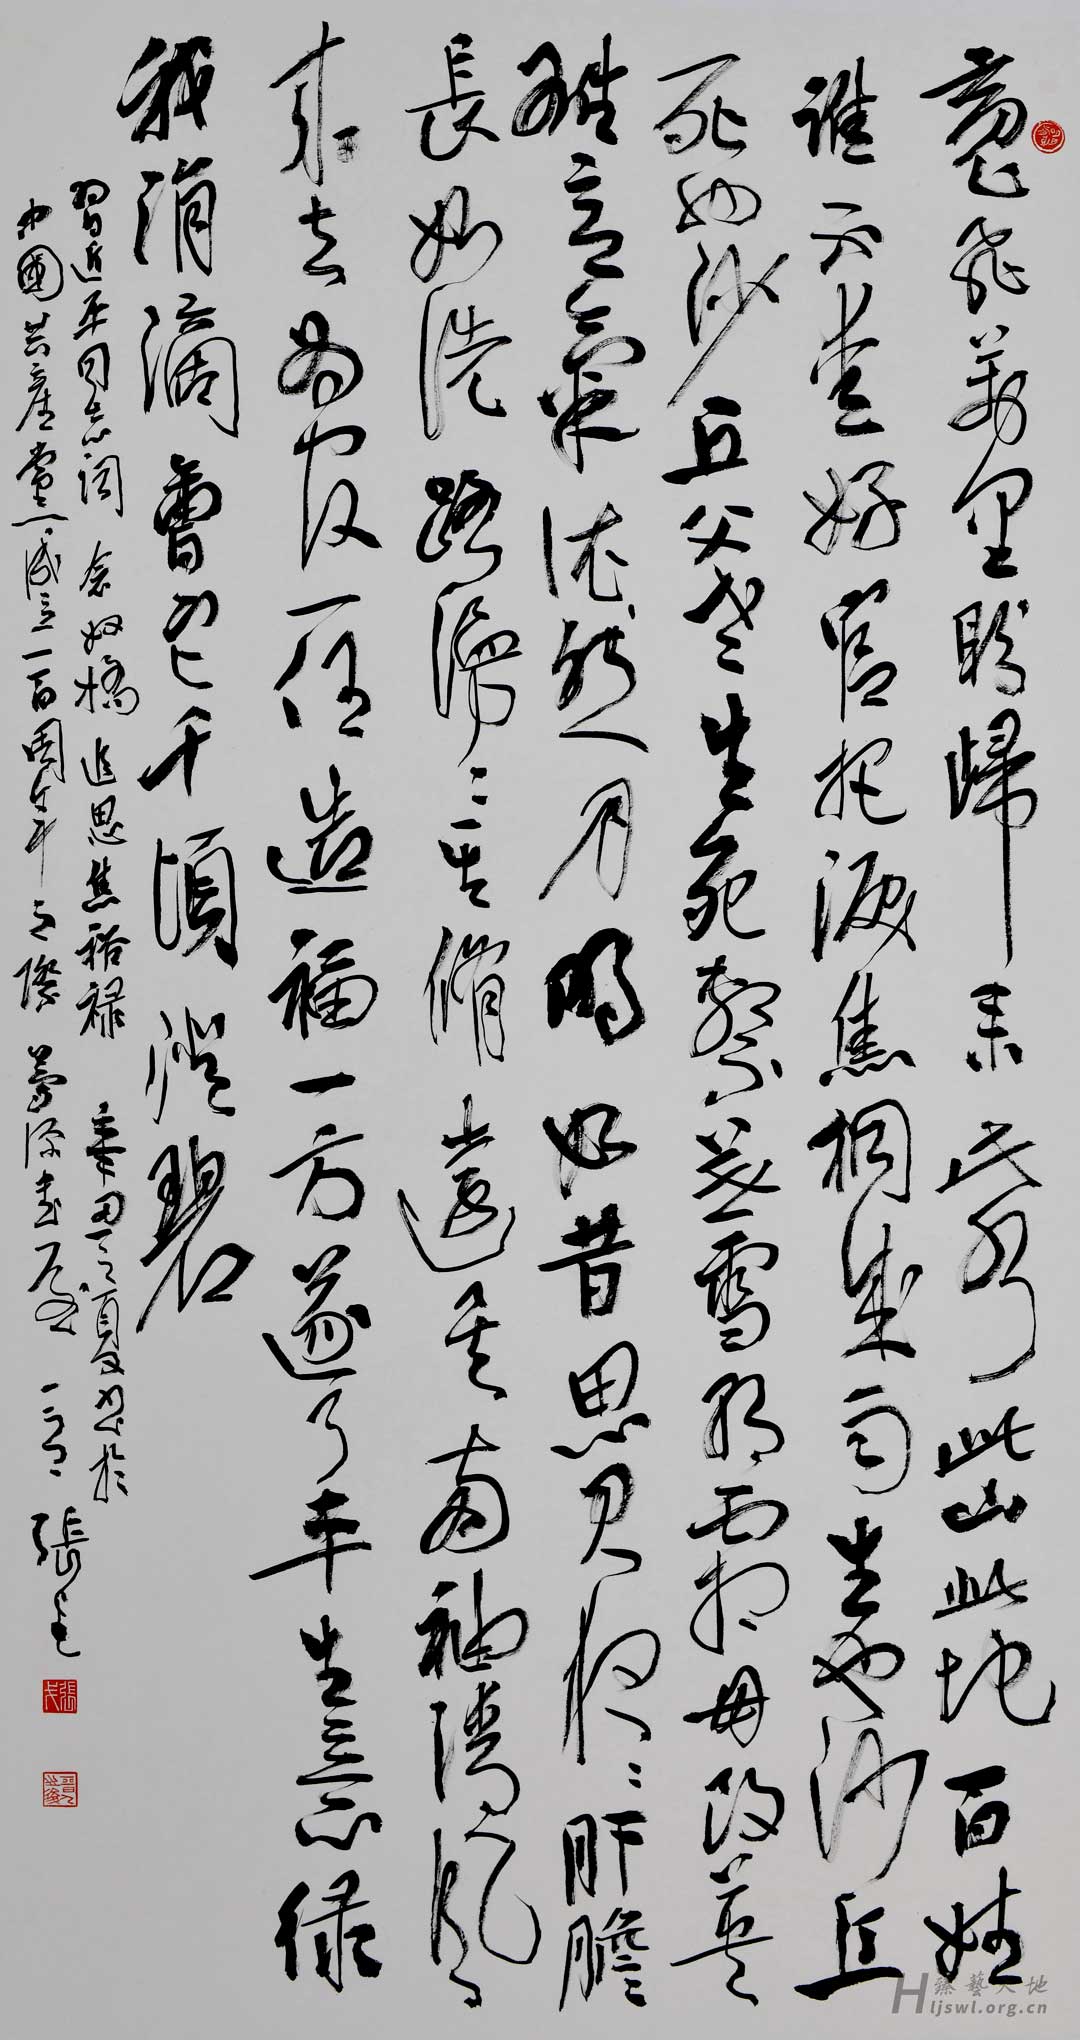 魂飛萬里盼歸來此水此山此地百姓
誰不愛好官把淚焦桐成雨生也沙丘
死也沙丘父老生死繫暮雪朝霜毋改英
雄意氣依然月明如昔思君夜々肝膽
長如洗路漫々其脩遠矣兩袖清風
來去為官一任造福一方遂了平生意綠
我涓滴會它千頃澄碧
習近平同志詞 念奴嬌 追思焦裕禄 辛丑之夏書於
中國共產黨成立一百周年之際 源書屋 張
臻藝天地
Hljswl.org.cn